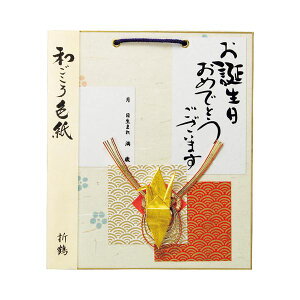 和ごころ色紙
折鶴
お誕生日
おめでとう
ございます
月 日生まれ 満 歳